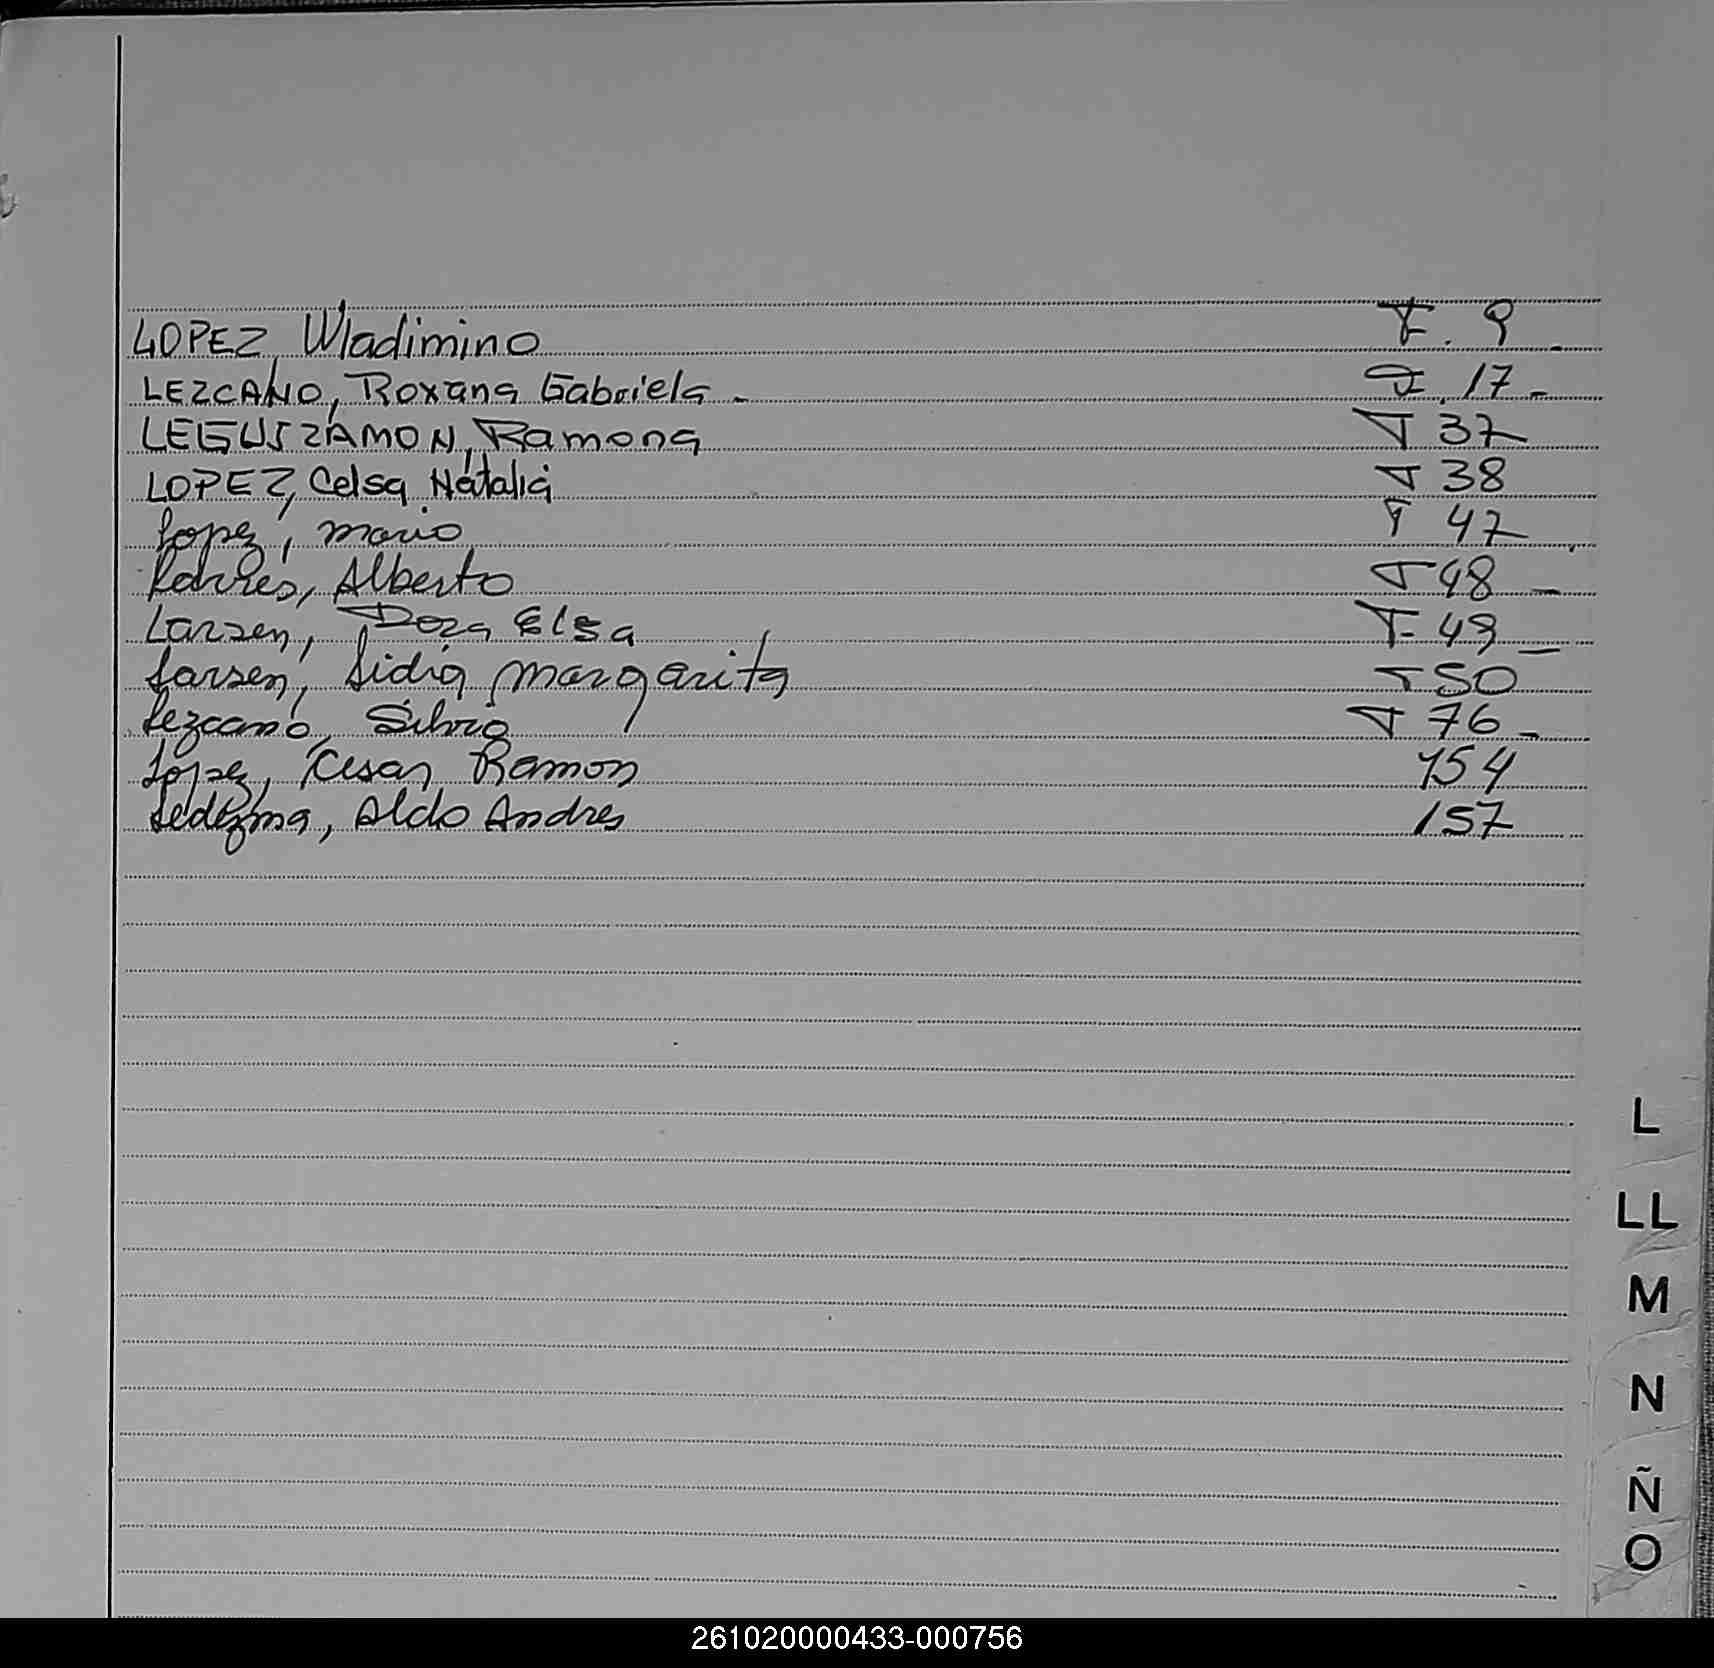 LOPEZ, Wladimino F. 9
LEZCANO, Roxana Gabriela - F. 17 -
LEGUIZAMON, Ramona F 37
LOPEZ, Celsa Natalia F 38
Lopez, Mario F 47
Alberto F 48 -
Larsen, Dora Elsa F- 49 -
Larsen, Lidia Margarita F 50
Lezcano, Silvio F 76 -
Lopez, Cesar Ramon 154
Ledezma, Aldo Andres 157
L
LL
M
N
Ñ
O
261020000433-000756